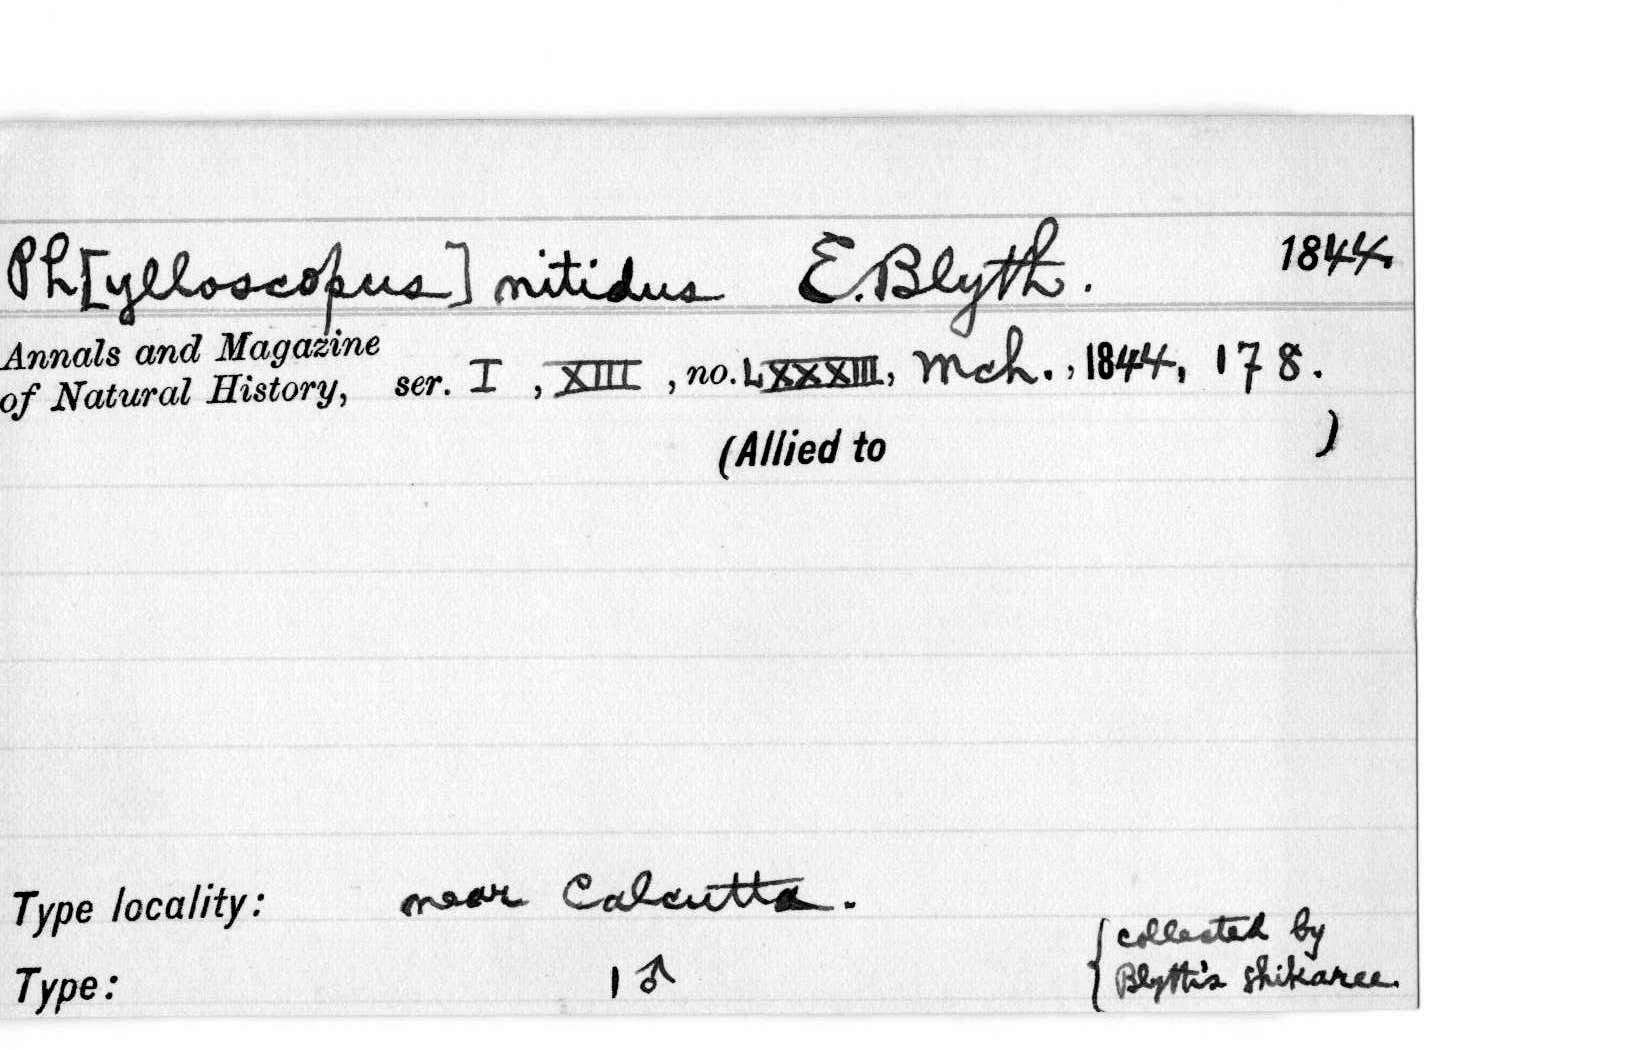 Ph[ylloscopus] nitidus E. Blyth. 1844.
Annals and Magazine
of Natural History, ser. I, XIII, no. LXXXIII, Mch., 1844, 178.
(Allied to )
Type locality: near Calcutta.
Type: 1 ♂
{collected by
Blyth's shikaree.